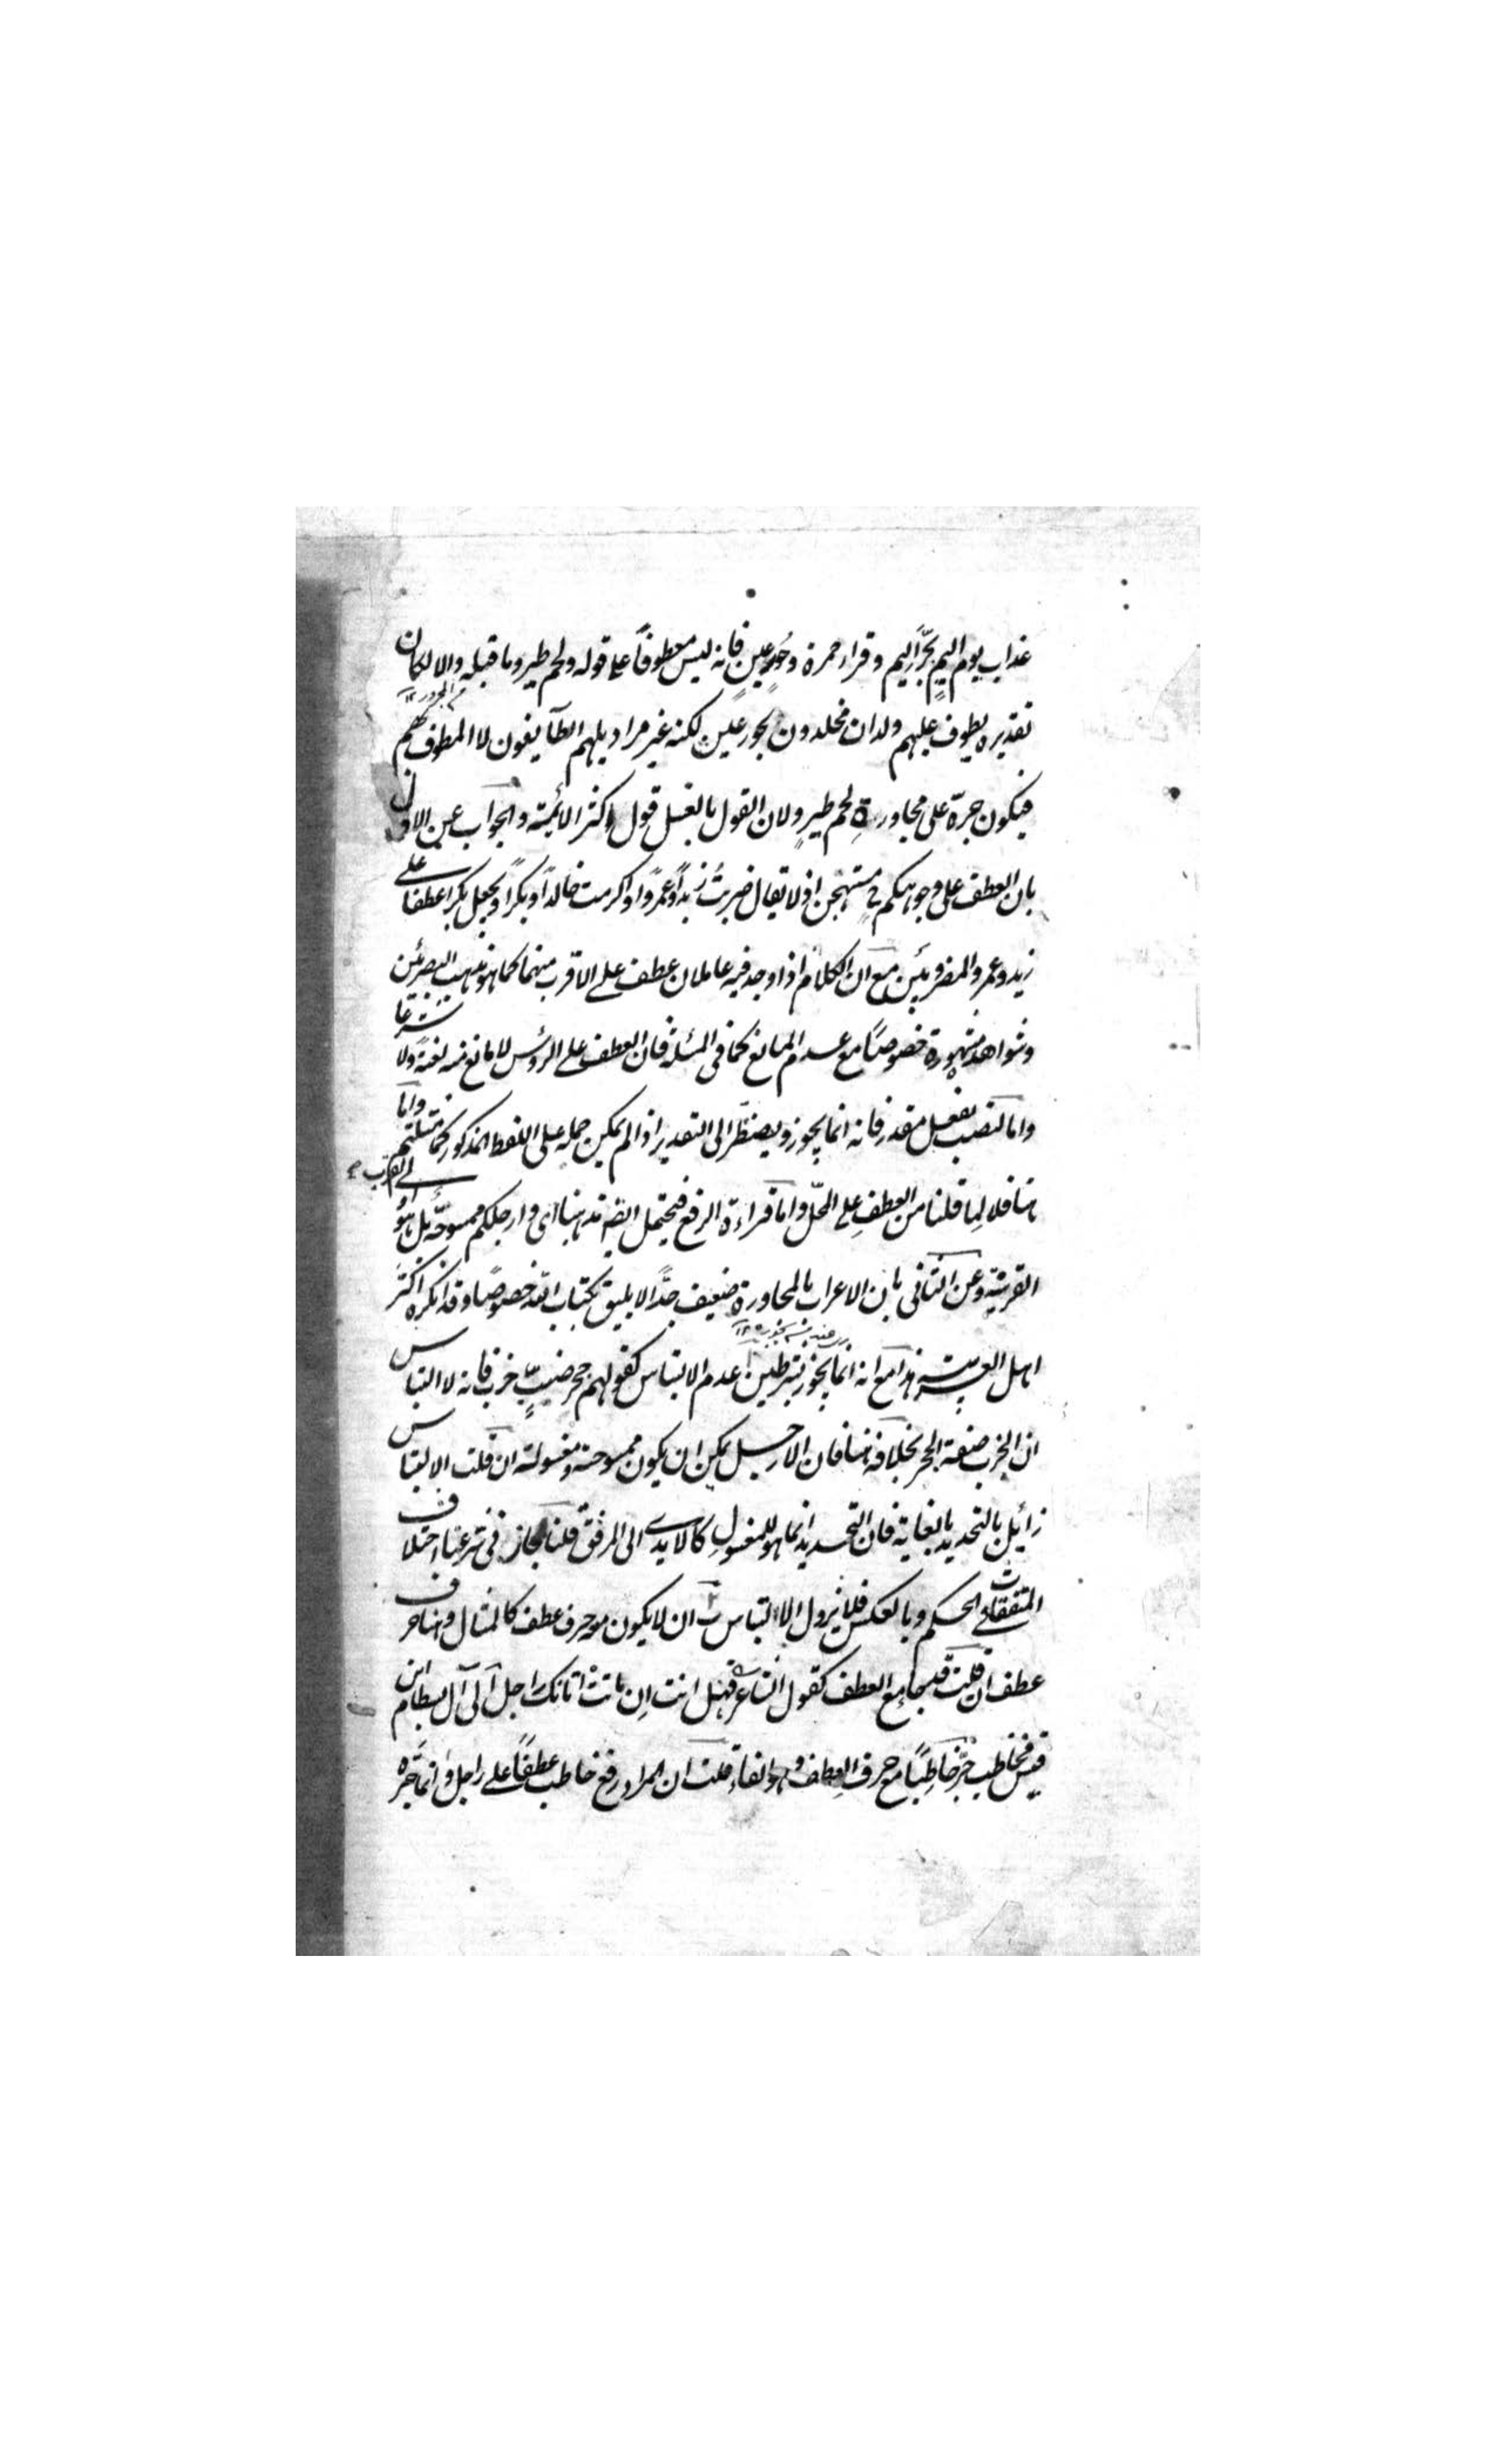 عذاب يوم اليمٍ بجرّ اليم وقراءة حمزة وحورٍ عينٍ فانه ليس معطوفاً على قوله ولحم طير وما قبله والا لكان
تقديره يطوف عليهم ولدان مخلدون بحور عين لكنه غير مراد بل هم الطآيفون لا المطوف بهم
فيكون جرّه على مجاورةِ لحم طيرٍ ولان القول بالغسل قول اكثر الائمة والجواب عن الاول
بان العطف على وجوهكم ح مستهجن اذ لا يقال ضربتُ زيداً وعمرًا واكرمت خالداً وبكراً ويجعل بكرا عطفا على
زيد وعمرو المضروبين مع ان الكلام اذا وجد فيه عاملان عطف على الاقرب منهما كما هو مذهب البصريين
وشواهده مشهورة خصوصًا مع عدم المانع كما فى المسئلة فان العطف على الرؤس لا مانع منه لغة ولا شرعا
واما النصب بفعل مقدر فانه انما يجوز ويضطر الى التقدير اذا لم يمكن حمله على اللفظ المذكور كما مثلتم واما
هنا فلا لما قلنا من العطف على المحلّ واما قراءة الرفع فيحتمل ايضا مذهبنا اى وارجلكم ممسوحة بل هو اولى لقرب
القرينة وعن الثانى بان الاعراب بالمجاورة ضعيف جدًّا لا يليق بكتاب الله خصوصًا وقد انكره اكثر
اهل العربية هذا مع انه انما يجوز بشرطين ا عدم الالتباس كقولهم جحر ضبٍّ خرب فانه لا التباس
ان الخرب صفة الجحر بخلافه هنا فان الارجل يمكن ان يكون ممسوحة ومغسولة ان قلت الالتباس
زائل بالتحديد بالغاية فان التحديد انما هو للمغسول كالايدى الى المرفق قلنا جاز فى شرعنا اختلاف
المتفقات فى الحكم وبالعكس فلا يزول الالتباس ب ان لا يكون معه حرف عطف كالمثال وهنا حرف
عطف ان قلت قد جا مع العطف كقول الشاعر فهل انت ان ماتت اتانك راحل الى آل بسطام ابن
قيس فخاطب جرّ خاطبًا مع حرف العطف وهو الفاء قلت ان المراد رفع خاطب عطفًا على راحل وانما جره